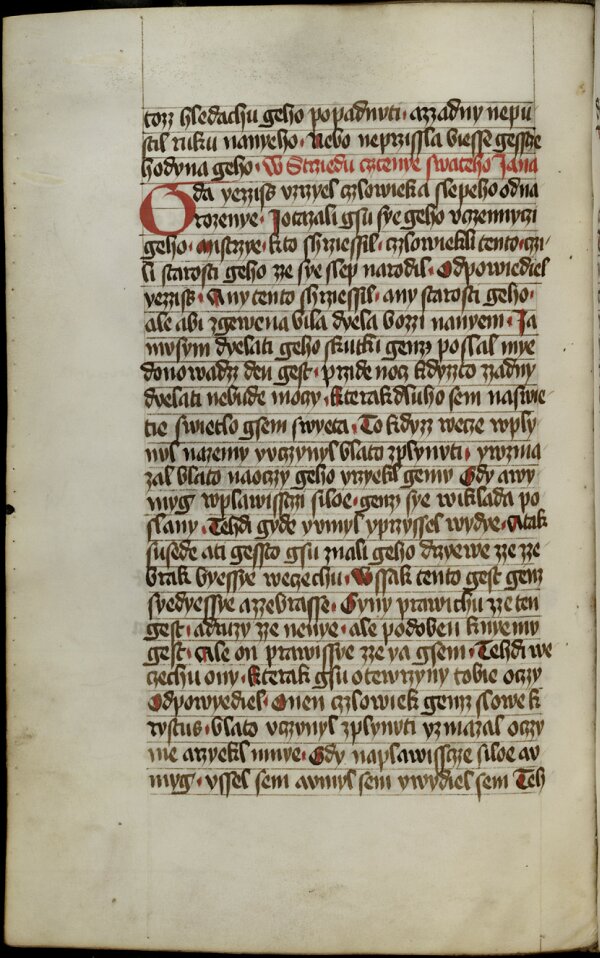 torz hledachu geho popadnuti · azzadny nepu
stil ruku nanyeho · Nebo neprzissla biesse gesscze
hodyna geho · W Strziedu cztenye swateho Jana
Gda yezziss vzrzyel czlowieka slepeho odna
rozenye · Jotazali gsu sye geho vczennyczi
geho · Mistrzye · kto shrziessil · czlowiekli tento · czi-
li starosti geho ze sye slep narodil · Odpowiediel
yezziss · Any tento shrziessil · any starosti geho ·
ale abi zgewena bila dyela bozzi nanyem · Ja
musym dyelati geho skutki genz poslal mye
donowadz den gest · przide nocz kdyzto zzadny
dyelati nebude moczy · Kterakdluho sem naswie-
tie swietlo gsem swyeta · To kdyzz wecze wply
nul nazemy yvczynyl blato zplynuti · ywzma
zal blato naoczy geho yrzyekl gemu Gdy awy
myg wplawisstzi siloe · genz sye wiklada po
slany · Tehdi gyde yvmyl yprzyssel wydye · Atak
susede ati gessto gsu znali geho drzyewe ze ze
brak byessye weczechu · Wssak tento gest genz
syedyessye azzebrasse · Gyny prawichu zze ten
gest · adruzy zze nenye · ale podoben knyemu
gest · Ale on prawissye zze ya gsem · Tehdi we
czechu ony · Kterak gsu otewrzyny tobie oczy
Odpowyediel · Onen czlowiek genz slowe k
rystus · blato vczynyl zplynuti yzmazal oczy
me arzyekl mnye · Gdy naplawisscze siloe av
myg · yssel sem avmyl sem ywydiel sem Teh